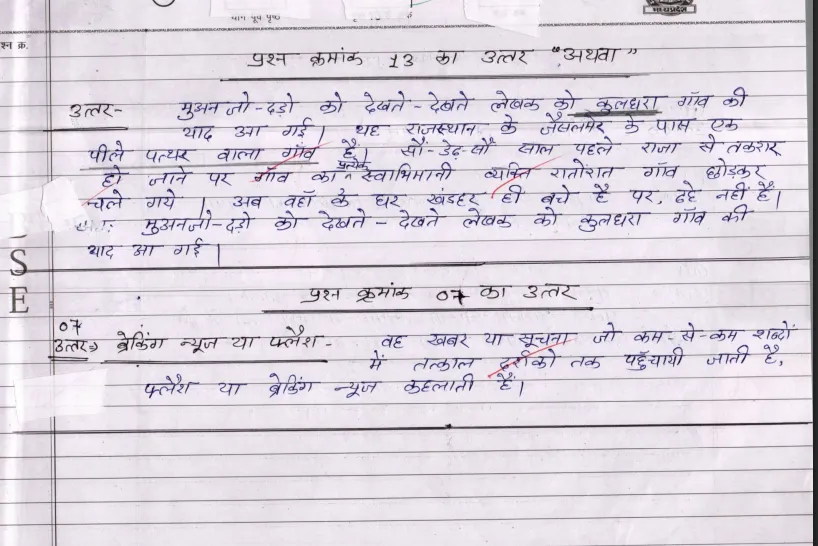 याग पूव पृष्ठ
मध्यप्रदेश
श्न क्र.
प्रश्न क्रमांक 13 का उत्तर "अथवा"
उत्तर- मुअनजो-दड़ो को देखते-देखते लेखक को कुलधरा गाँव की
याद आ गई। यह राजस्थान के जैसलमेर के पास एक
पीले पत्थर वाला गाँव है। सौ-डेढ़-सौ साल पहले राजा से तकरार
हो जाने पर गाँव का प्रत्येक स्वाभिमानी व्यक्ति रातोंरात गाँव छोड़कर
चले गये। अब वहाँ के घर खंडहर ही बचे है पर, ढहे नहीं है।
मुअनजो-दड़ो को देखते-देखते लेखक को कुलधरा गाँव की
याद आ गई।
S
E
प्रश्न क्रमांक 07 का उत्तर
07
उत्तर⇒ ब्रेकिंग न्यूज या फ्लैश - वह खबर या सूचना जो कम-से-कम शब्दों
में तत्काल दर्शको तक पहुँचायी जाती है,
फ्लैश या ब्रेकिंग न्यूज कहलाती है।